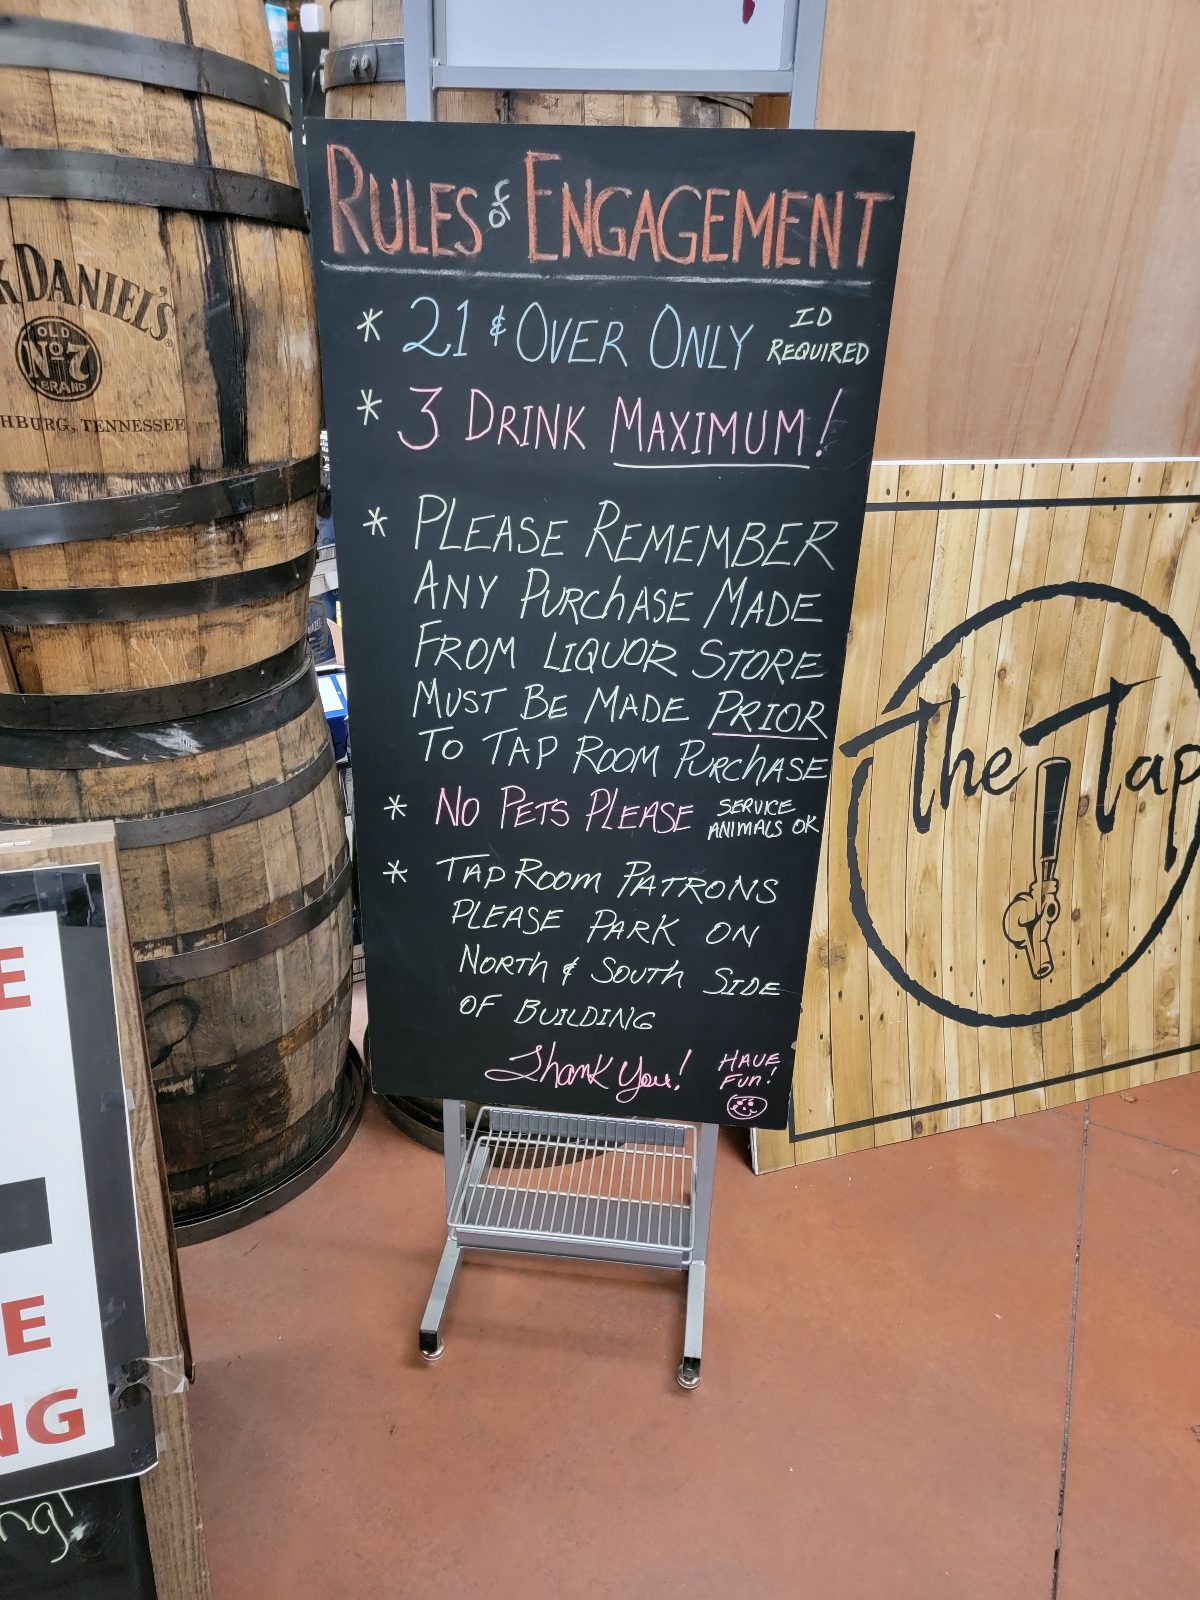 RULES of ENGAGEMENT
* 21 & OVER ONLY ID REQUIRED
* 3 DRINK MAXIMUM!
* PLEASE REMEMBER
ANY PURCHASE MADE
FROM LIQUOR STORE
MUST BE MADE PRIOR
TO TAP ROOM PURCHASE
* NO PETS PLEASE SERVICE ANIMALS OK
* TAP ROOM PATRONS
PLEASE PARK ON
NORTH & SOUTH SIDE
OF BUILDING
Thank you! HAVE FUN!
K DANIEL'S
OLD
No 7
BRAND
HBURG, TENNESSEE
The Tap
E
E
NG
ng!